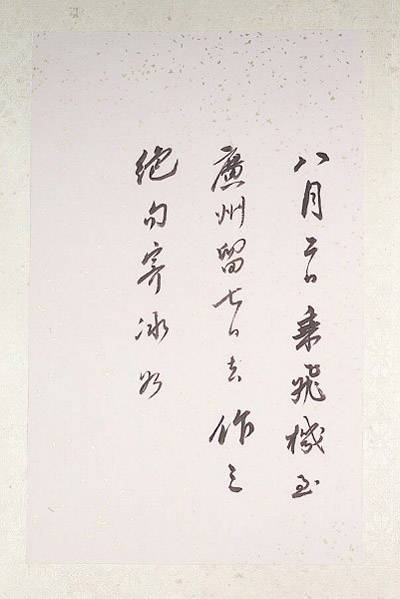 八月二日乘飛機至
廣州留七日去作三
絕句寄冰如